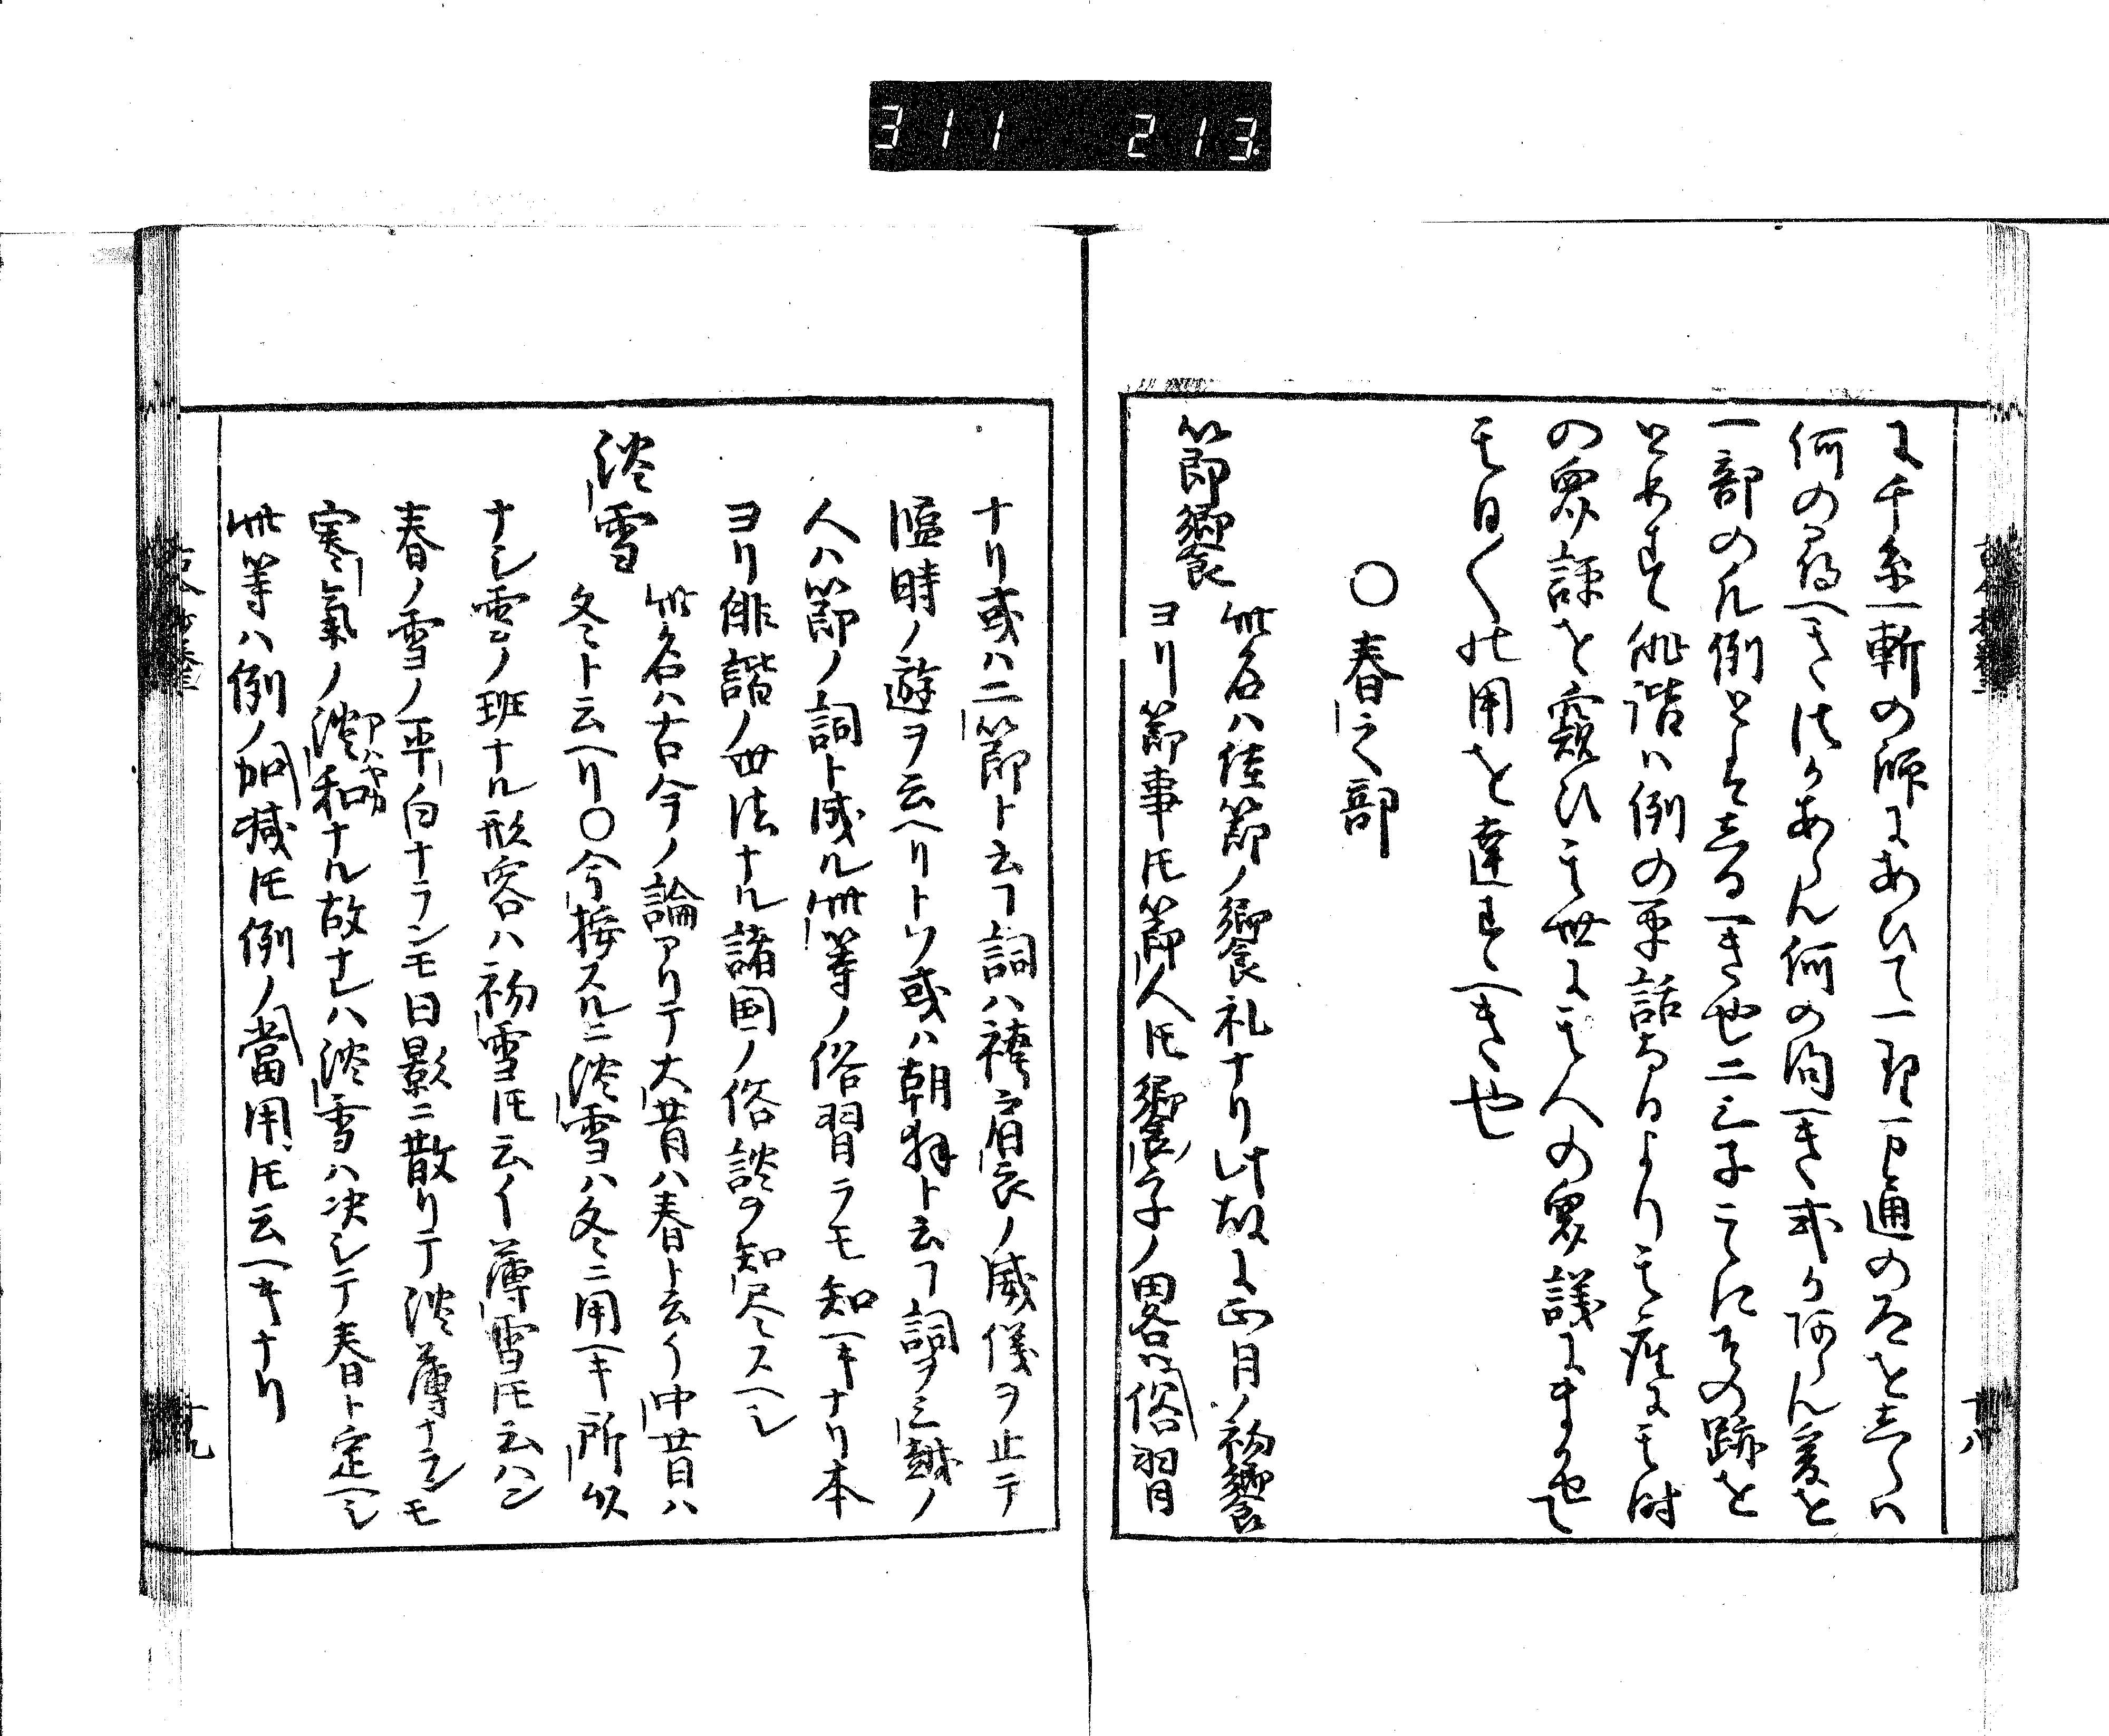 311 213.
に千糸一斬の師にあひて一理万通の道をしらは
何の尋へきはかあらん何の問へき或かあらん爰を
一部の凡例とはしるへき也二三子これに其の跡を
とめすも俳諧ハ例の平話なるより其座に其時
の衆評を窺ひ其世に其人の衆議にまかせて
其日〱の用を達すへき也
○春之部
節饗
此名ハ佳節ノ饗礼ナリ此故に正月ノ初饗
ヨリ節事トモ節人トモ饗子ノ畧ハ俗習
ナリ或ハ二節ト云フ詞ハ袴肩衣ノ威儀ヲ止テ
臨時ノ遊ヲ云ヘリトソ或ハ朝拝ト云フ詞ヲ三越ノ
人ハ節ノ詞ト成ル此等ノ俗習ラモ知ヘキナリ本
ヨリ俳諧ノ世法ナル諸国ノ俗談ヲ知尽スヘシ
淡雪
此名ハ古今ノ論アリテ大昔ハ春ト云イ中昔ハ
冬ト云ヘリ○今按スルニ淡雪ハ冬ニ用ヘキ所以
ナシ雪ノ班ナル形容ハ初雪トモ云イ薄雪トモ云ハン
春ノ雪ノ平白ナランモ日影ニ散リテ淡薄ナランモ
寒氣ノ淡和ナル故ナレハ淡雪ハ决シテ春ト定ヘシ
此等ハ例ノ加减トモ例ノ當用トモ云ヘキナリ
十八
十九